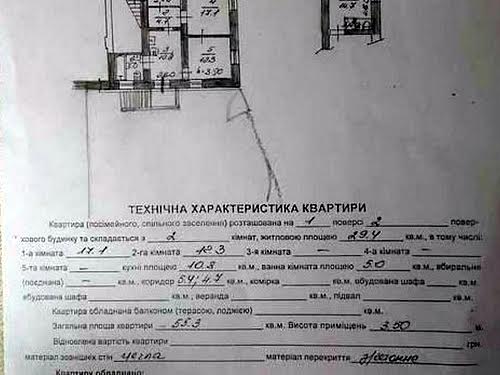 4
17.1
2
4.7
3
10.8
5
12.3
h-3.50
ТЕХНІЧНА ХАРАКТЕРИСТИКА КВАРТИРИ
Квартира (посімейного, спільного заселення) розташована на 1 поверсі 2 повер-
хового будинку та складається з 2 кімнат, житловою площею 29.4 кв.м, в тому числі:
1-а кімната 17.1 2-га кімната 12.3 3-я кімната – 4-а кімната –
5-та кімната – кухні площею 10.8 кв.м., ванна кімната площею 5.0 кв.м., вбиральне
(поєднана) – кв.м., коридор 5.4; 4.7 кв.м., комірка кв.м., обудована шафа кв.м.
вбудована шафа кв.м., веранда кв.м., підвал кв.м.
Квартира обладнана балконом (терасою, лоджією) кв.м.
Загальна площа квартири – 55.3 кв.м. Висота приміщень 3.50 м.
Відновлена вартість квартири грн
матеріал зовнішніх стін цегла матеріал перекриття
Квартиру обладнано: